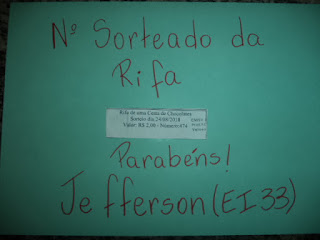 Nº Sorteado da
Rifa
Rifa de uma Cesta de Chocolates
Sorteio dia 24/09/2010
Valor: R$ 2,00 - Número 074
Parabéns!
Jefferson (EI 33)